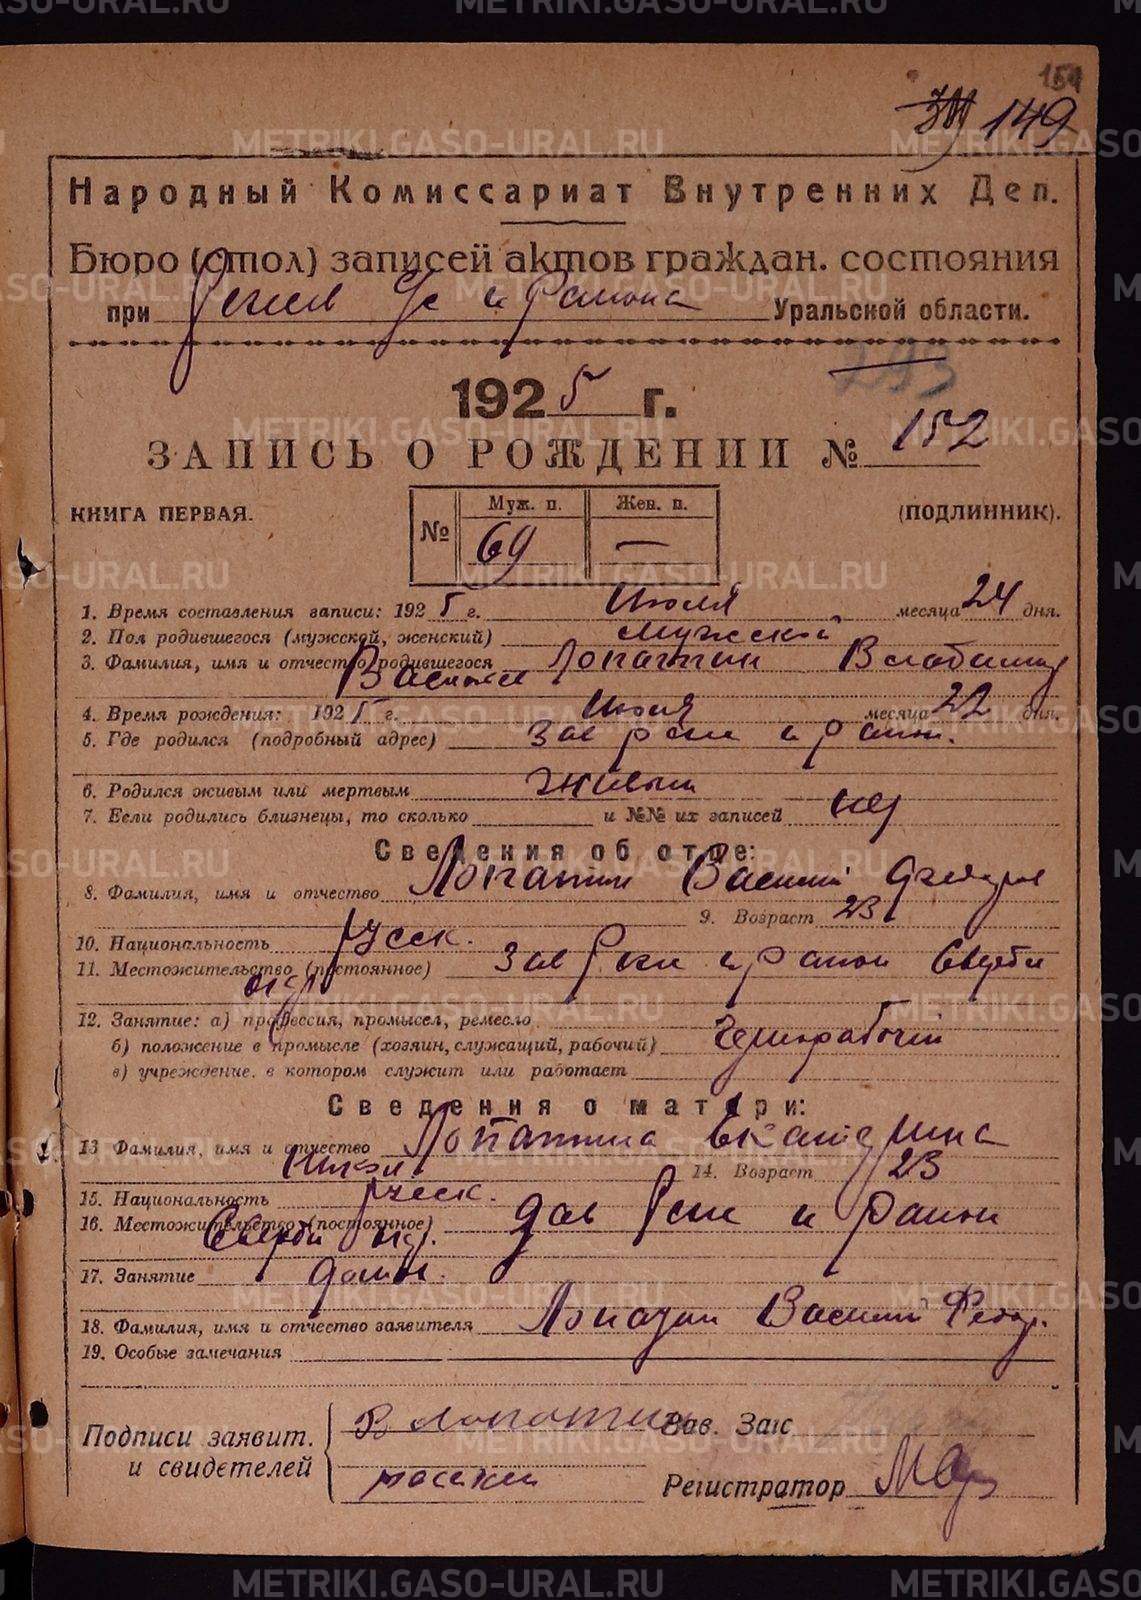 METRIKI.GASO-URAL.RU
154
149
Народный Комиссариат Внутренних Дел.
Бюро (стол) записей актов граждан. состояния
при и Района Уральской области.
293
1925 г.
ЗАПИСЬ О РОЖДЕНИИ № 152
КНИГА ПЕРВАЯ. (ПОДЛИННИК).
№ Муж. п. Жен. п.
69 —
1. Время составления записи: 1925 г. Июля месяца 24 дня.
2. Пол родившегося (мужской, женский) мужской
3. Фамилия, имя и отчество родившегося Лопатин Владимир
4. Время рождения: 1925 г. Июля месяца 22 дня.
5. Где родился (подробный адрес) Зав и район.
6. Родился живым или мертвым живым
7. Если родились близнецы, то сколько и №№ их записей нет
Сведения об отце:
8. Фамилия, имя и отчество Лопатин Василий
9. Возраст 23
10. Национальность русск.
11. Местожительство (постоянное) Зав и район
окр
12. Занятие: а) профессия, промысел, ремесло
б) положение в промысле (хозяин, служащий, рабочий) Чернорабочий
в) учреждение, в котором служит или работает
Сведения о матери:
13 Фамилия, имя и отчество Лопатина Екатерина
Никол 14. Возраст 23
15. Национальность русск.
16. Местожительство (постоянное) и район
окр.
17. Занятие домхоз.
18. Фамилия, имя и отчество заявителя Лопатин Василий Федор.
19. Особые замечания
Подписи заявит. и свидетелей
В Лопатин Зав. Загс
Регистратор